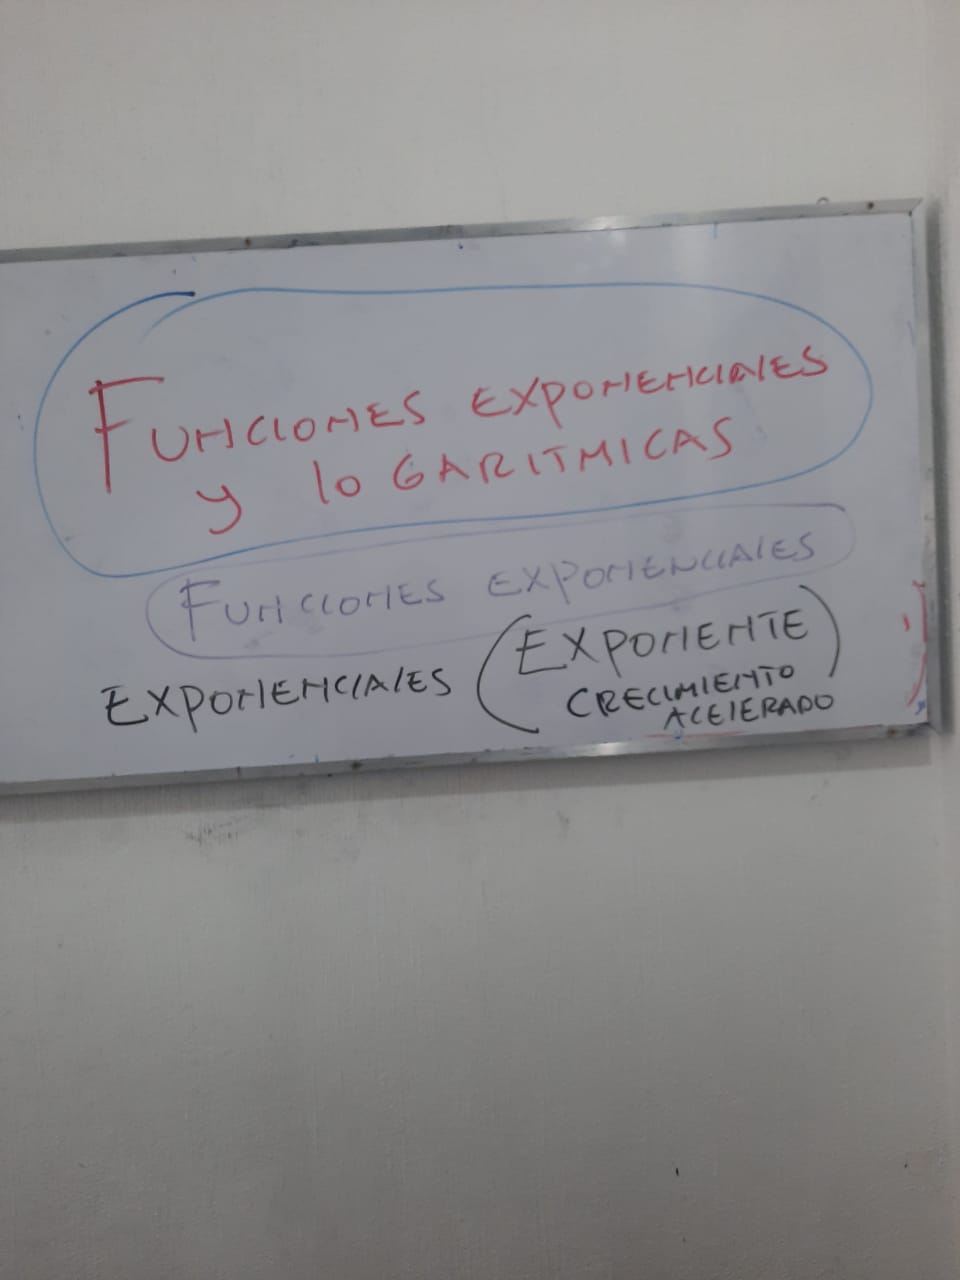 FUNCIONES EXPONENCIALES
y loGARITMICAS
FUNCIONES EXPONENCIALES
EXPONENCIALES (EXPONENTE)
CRECIMIENTO
ACElERADO